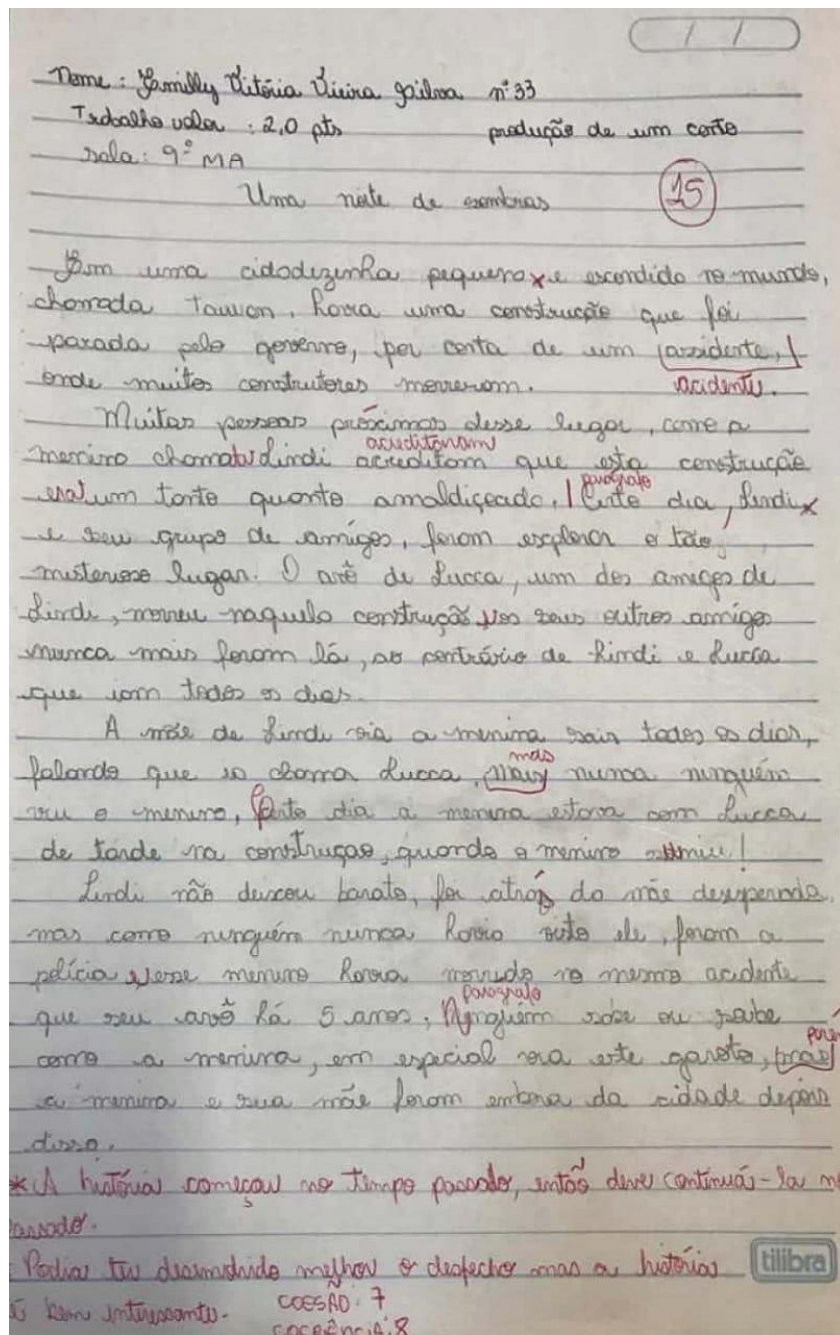 / /
Nome: Jamilly Vitória Vieira Silva nº 33
Trabalho valor : 2,0 pts produção de um conto
sala: 9º MA
Uma noite de sombras 15
Em uma cidadezinha pequena x e escondida no mundo,
chamada Tauvon, havia uma construção que foi
parada pelo governo, por conta de um assidente,
acidente.
onde muitos construtores morreram.
Muitas pessoas próximas desse lugar, como a
acreditavam
menina chamada Lindi acreditam que esta construção
parágrafo
era um tanto quanto amaldiçoada. | Certo dia, Lindi x
e seu grupo de amigos, foram explorar o tão
misterioso lugar. O avô de Lucca, um dos amigos de
Lindi, morreu naquela construção, os seus outros amigos
nunca mais foram lá, ao contrário de Lindi e Lucca
que iam todos os dias.
A mãe de Lindi via a menina sair todos os dias,
mas
falando que ia chamar Lucca, mais nunca ninguém
viu o menino, Certo dia a menina estava com Lucca
de tarde na construção, quando o menino sumiu!
Lindi não deixou barato, foi atrás da mãe desesperada,
mas como ninguém nunca havia visto ele, foram a
polícia, esse menino havia morrido no mesmo acidente
parágrafo
que seu avô há 5 anos, Ninguém sobe ou sabe
porém
como a menina, em especial via este garoto, mas
a menina e sua mãe foram embora da cidade depois
disso.
*A história começou no tempo passado, então deve continuá-la no
passado.
Podia ter desenvolvido melhor o desfecho mas a história tilibra
é bem interessante. COESSÃO: 7
COERÊNCIA: 8